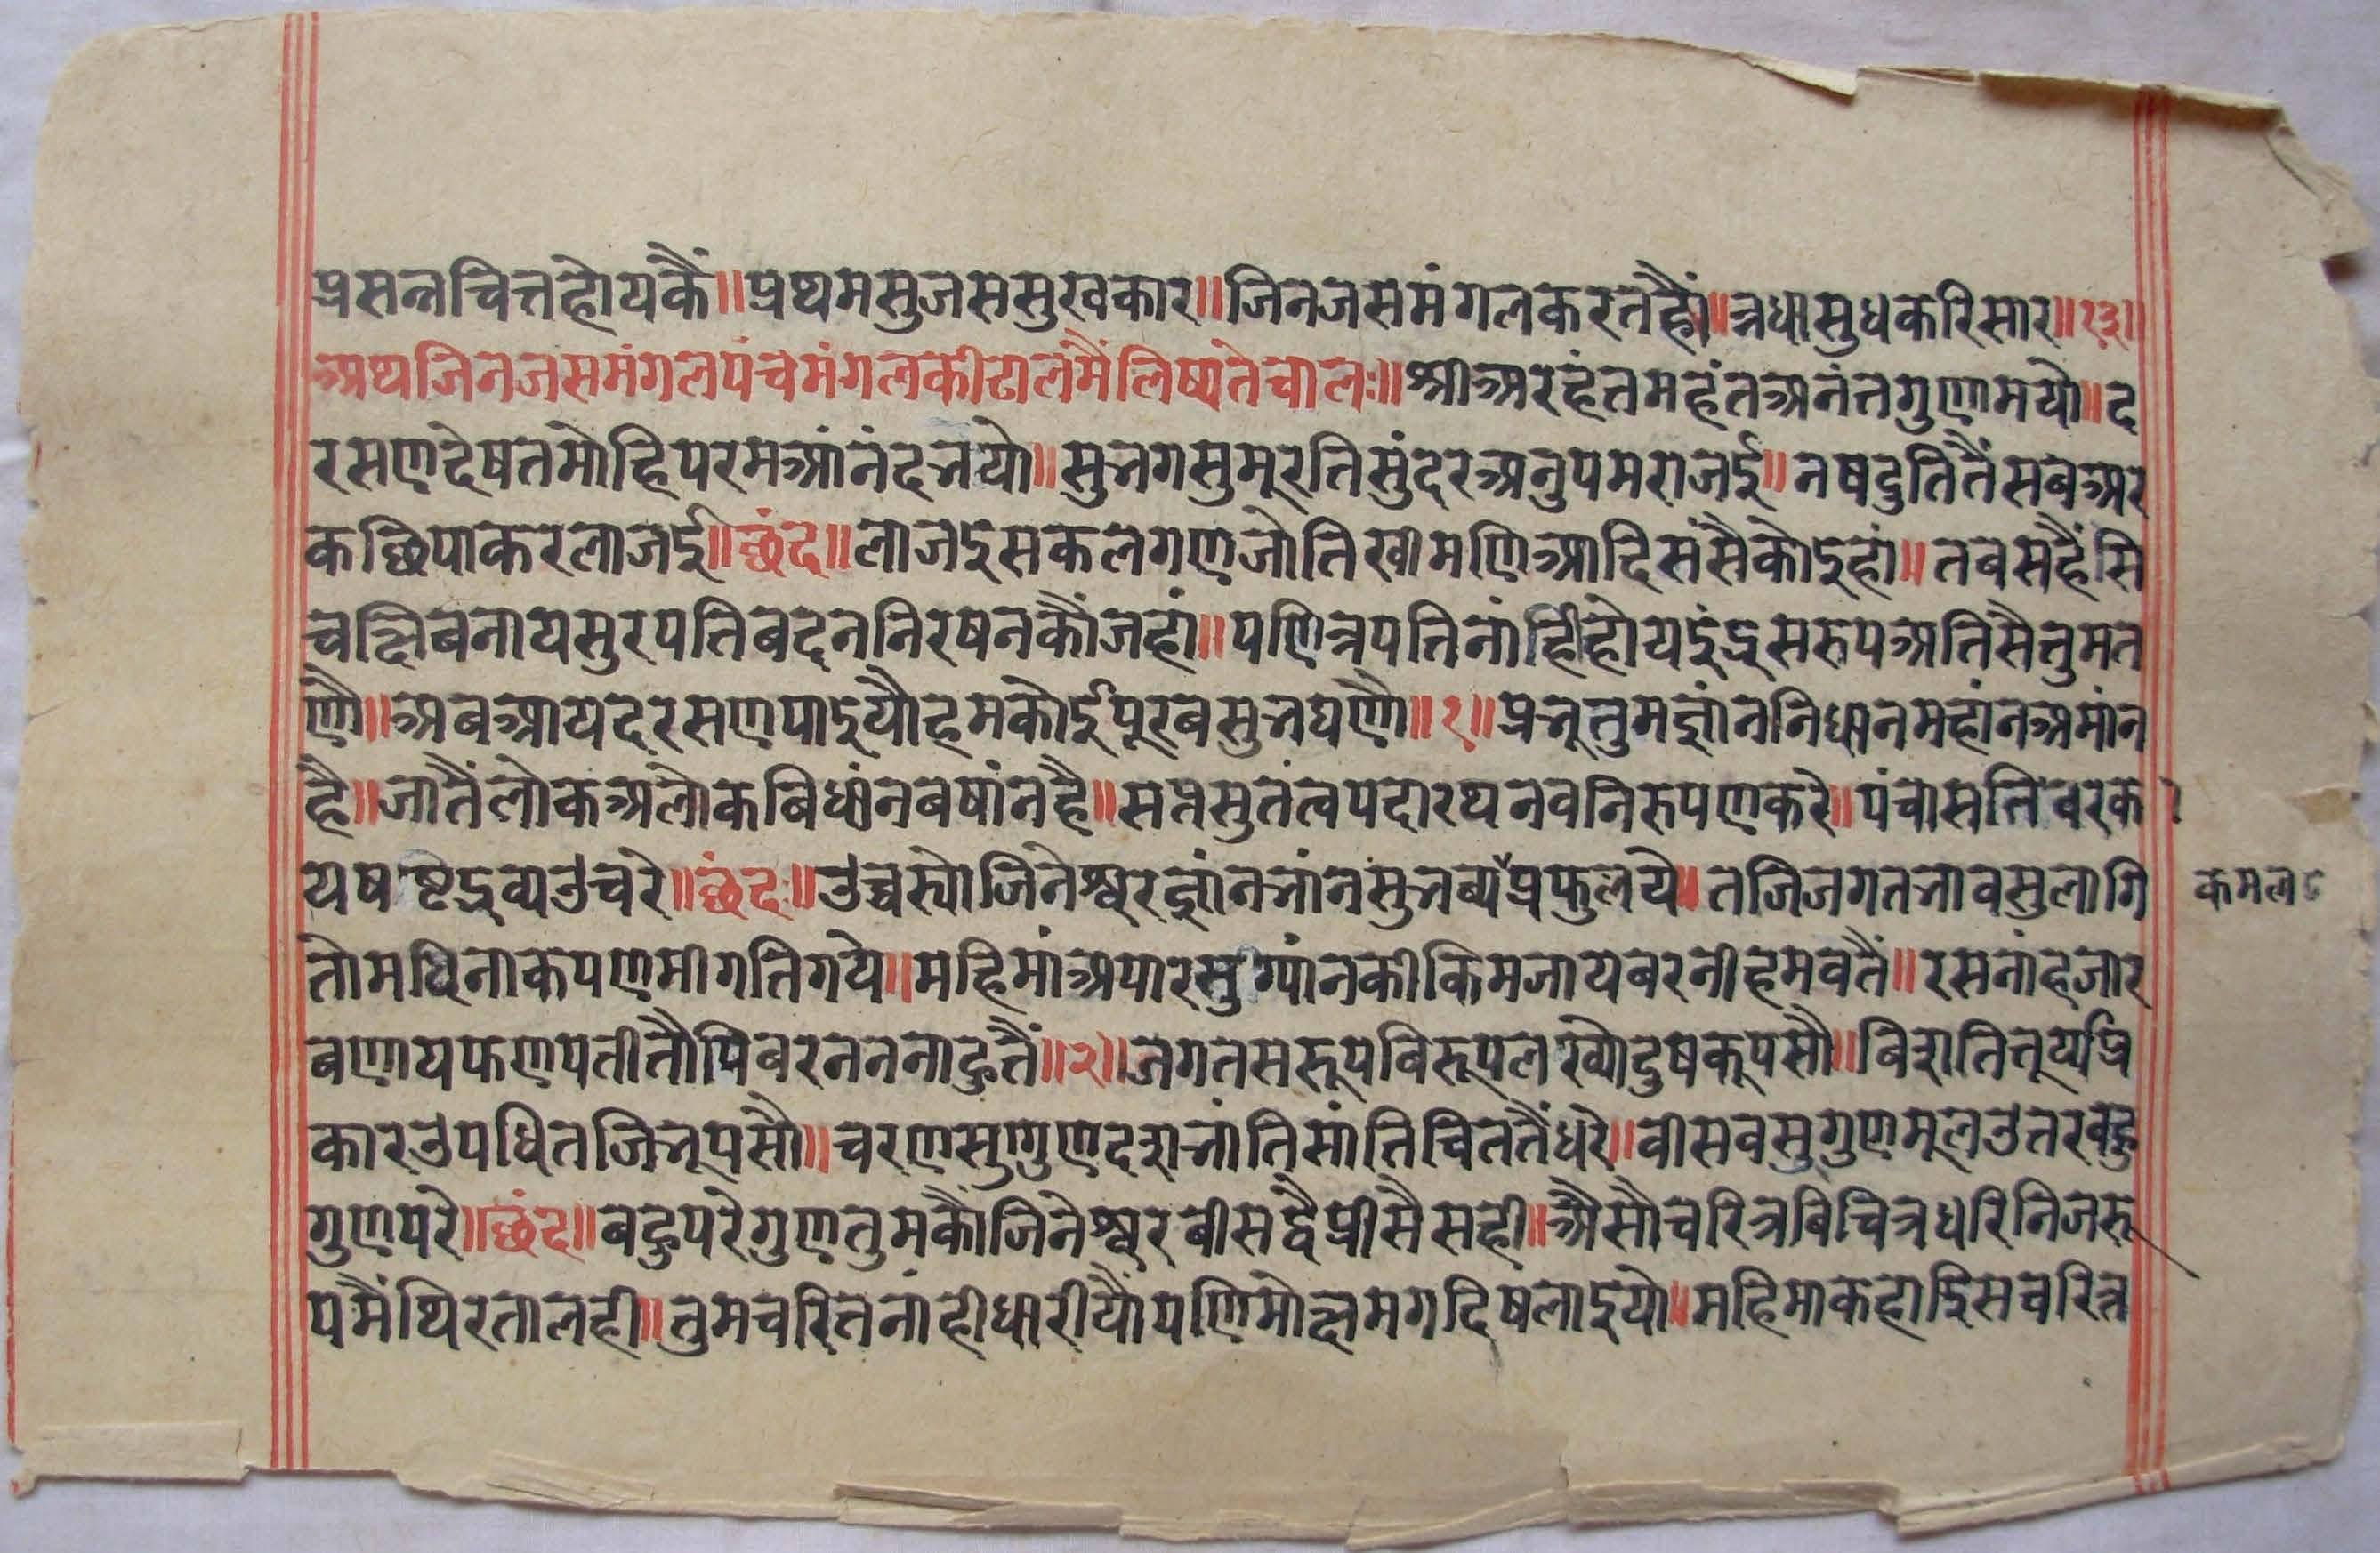 प्रसन्नचित्तहोयकैं॥प्रथमसुजससुखकार॥जिनजसमंगलकरतहौं॥त्रधासुधकरिसार॥१३॥
अथजिनजसमंगलपंचमंगलकीढालमैंलिष्यतेचालः॥श्रीअरहंतमहंतअनंतगुणमयो॥द
रसणदेषतमोहिपरमआंनंदभयो॥सुभगसुमूरतिसुंदरअनुपमराजई॥नषदुतितैंसबअर
कछिपाकरलाजई॥छंद॥लाजइसकलगणजोतिखीमणिआदिसंसैकोइहां॥तबसहैंसि
चक्षिबनायसुरपतिबदननिरषनकौंजहां॥पणित्रपत्तिनांहिंहोयइंद्रसरुपअतिसैतुमत
णै॥अबआयदरसणपाइयौहमकोईपूरबसुभघणै॥१॥प्रभूतुमज्ञांननिधानमहांनअमांन
है॥जातैंलोकअलोकबिधांनबषांनहै॥सप्तसुतत्वपदारथनवनिरुपणकरे॥पंचासतिबरक
यषष्टद्रव्यउचरे॥छंदः॥उच्चस्योजिनेश्वरज्ञांनभांनसुभव्यप्रफुलये॥तजिजगतभावसुलागि
कमल
तोमधिनाकपणमीगतिगये॥महिमांअपारसुग्यांनकीकिमजायबरनीहमवतैं॥रसनांहजार
बणायफणपतीतौपिबरननना​हुतैं॥२॥जगतसरूपविरूपलख्योदुषकूपसौ॥बिरातितूर्यप्र
कारउपधितजिभूपसौ॥चरणसुगुणदशभांतिसांतिचिततैंधरे॥वीसवसुगुणमूलउतरबहु
गुणपरे॥छंद॥बहुपरेगुणतुमकौंजिनेश्वरबीसद्वैप्रीसैसही॥अैसौचरित्रबिचित्रधरिनिजरू
पमैंथिरतालही॥तुमचरितनांहीधारीयौंपणिमोक्षमगदिषलाइयो॥महिमाकहाइिसचरित्र